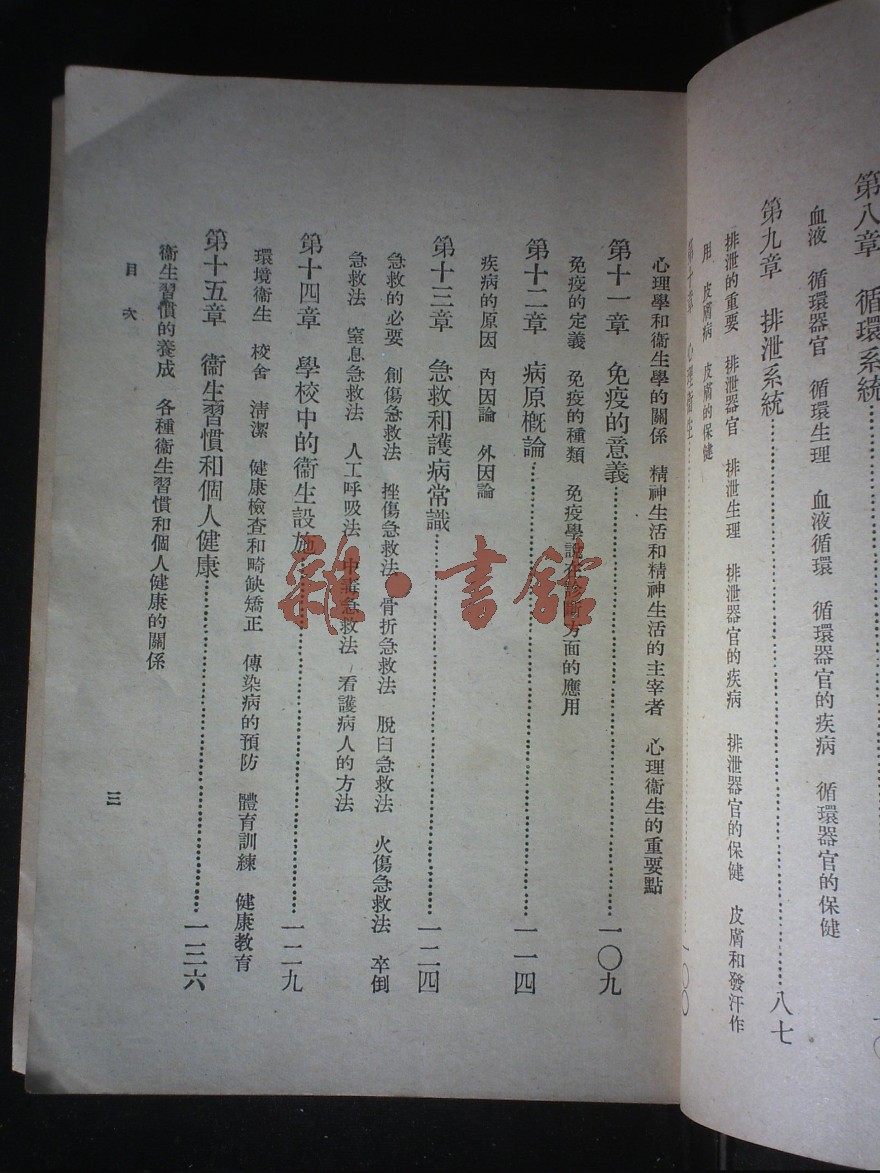 第八章　循環系統
血液　循環器官　循環生理　血液循環　循環器官的疾病　循環器官的保健
第九章　排泄系統……八七
排泄的重要　排泄器官　排泄生理　排泄器官的疾病　排泄器官的保健　皮膚和發汗作
用　皮膚病　皮膚的保健
第十章　心理衞生……一〇〇
心理學和衞生學的關係　精神生活和精神生活的主宰者　心理衞生的重要點
第十一章　免疫的意義……一〇九
免疫的定義　免疫的種類　免疫學說在診斷方面的應用
第十二章　病原概論……一一四
疾病的原因　內因論　外因論
第十三章　急救和護病常識……一二四
急救的必要　創傷急救法　挫傷急救法　骨折急救法　脫臼急救法　火傷急救法　卒倒
急救法　窒息急救法　人工呼吸法　中毒急救法　看護病人的方法
第十四章　學校中的衞生設施……一二九
環境衞生　校舍　淸潔　健康檢查和畸缺矯正　傳染病的預防　體育訓練　健康教育
第十五章　衞生習慣和個人健康……一三六
衞生習慣的養成　各種衞生習慣和個人健康的關係
目次
三
雜·書館